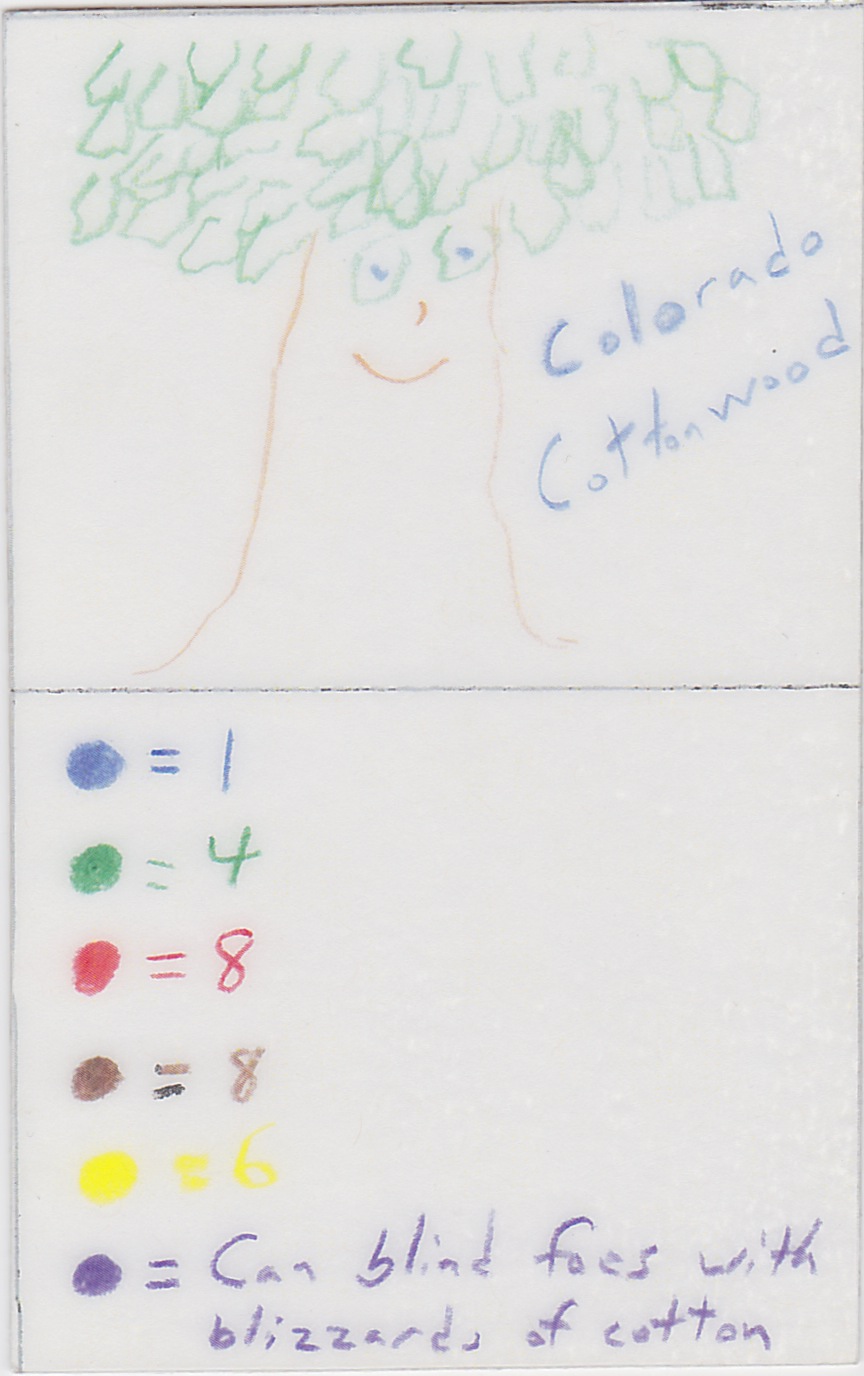 Colorado
Cottonwood
= 1
= 4
= 8
= 8
= 6
= Can blind foes with
blizzards of cotton